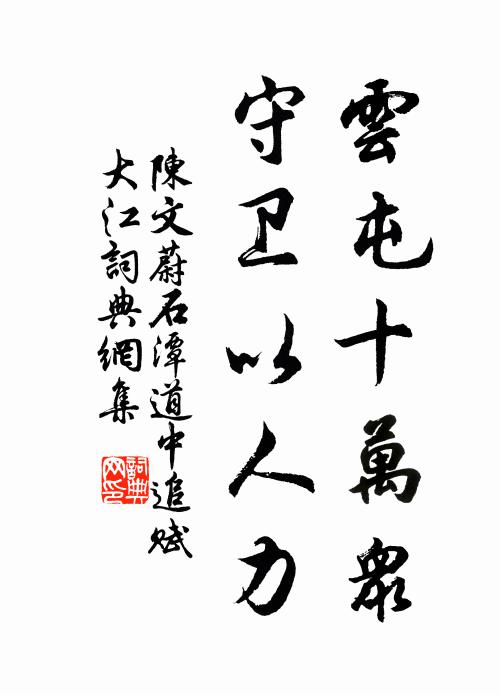 雲屯十萬眾
守卫以人力
陳文蔚石潭道中追賦
大江詞典網集
詞典网印